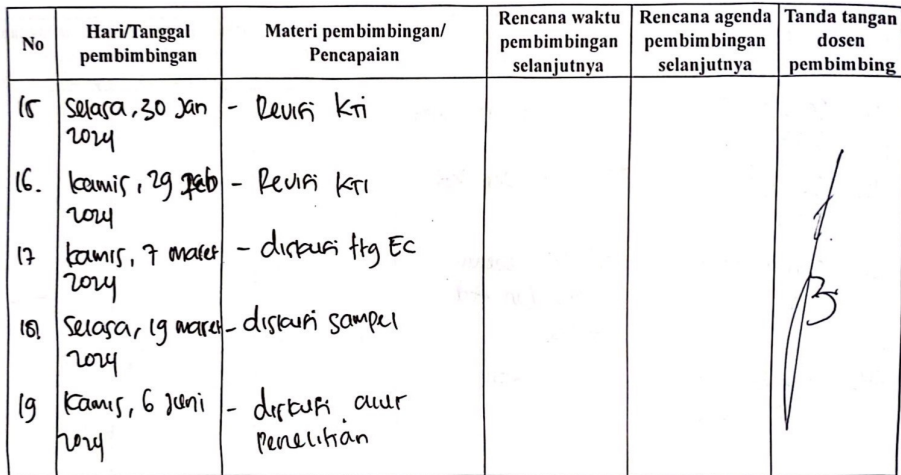 No Hari/Tanggal pembimbingan Materi pembimbingan/ Pencapaian Rencana waktu pembimbingan selanjutnya Rencana agenda pembimbingan selanjutnya Tanda tangan dosen pembimbing
15 Selasa, 30 Jan - Revisi KTI
2024
16. kamis, 29 Feb - Revisi KTI
2024
17 kamis, 7 maret - diskusi ttg EC
2024
18. Selasa, 19 maret - diskusi sampel
2024
19 Kamis, 6 Juni - diskusi alur
2024 penelitian